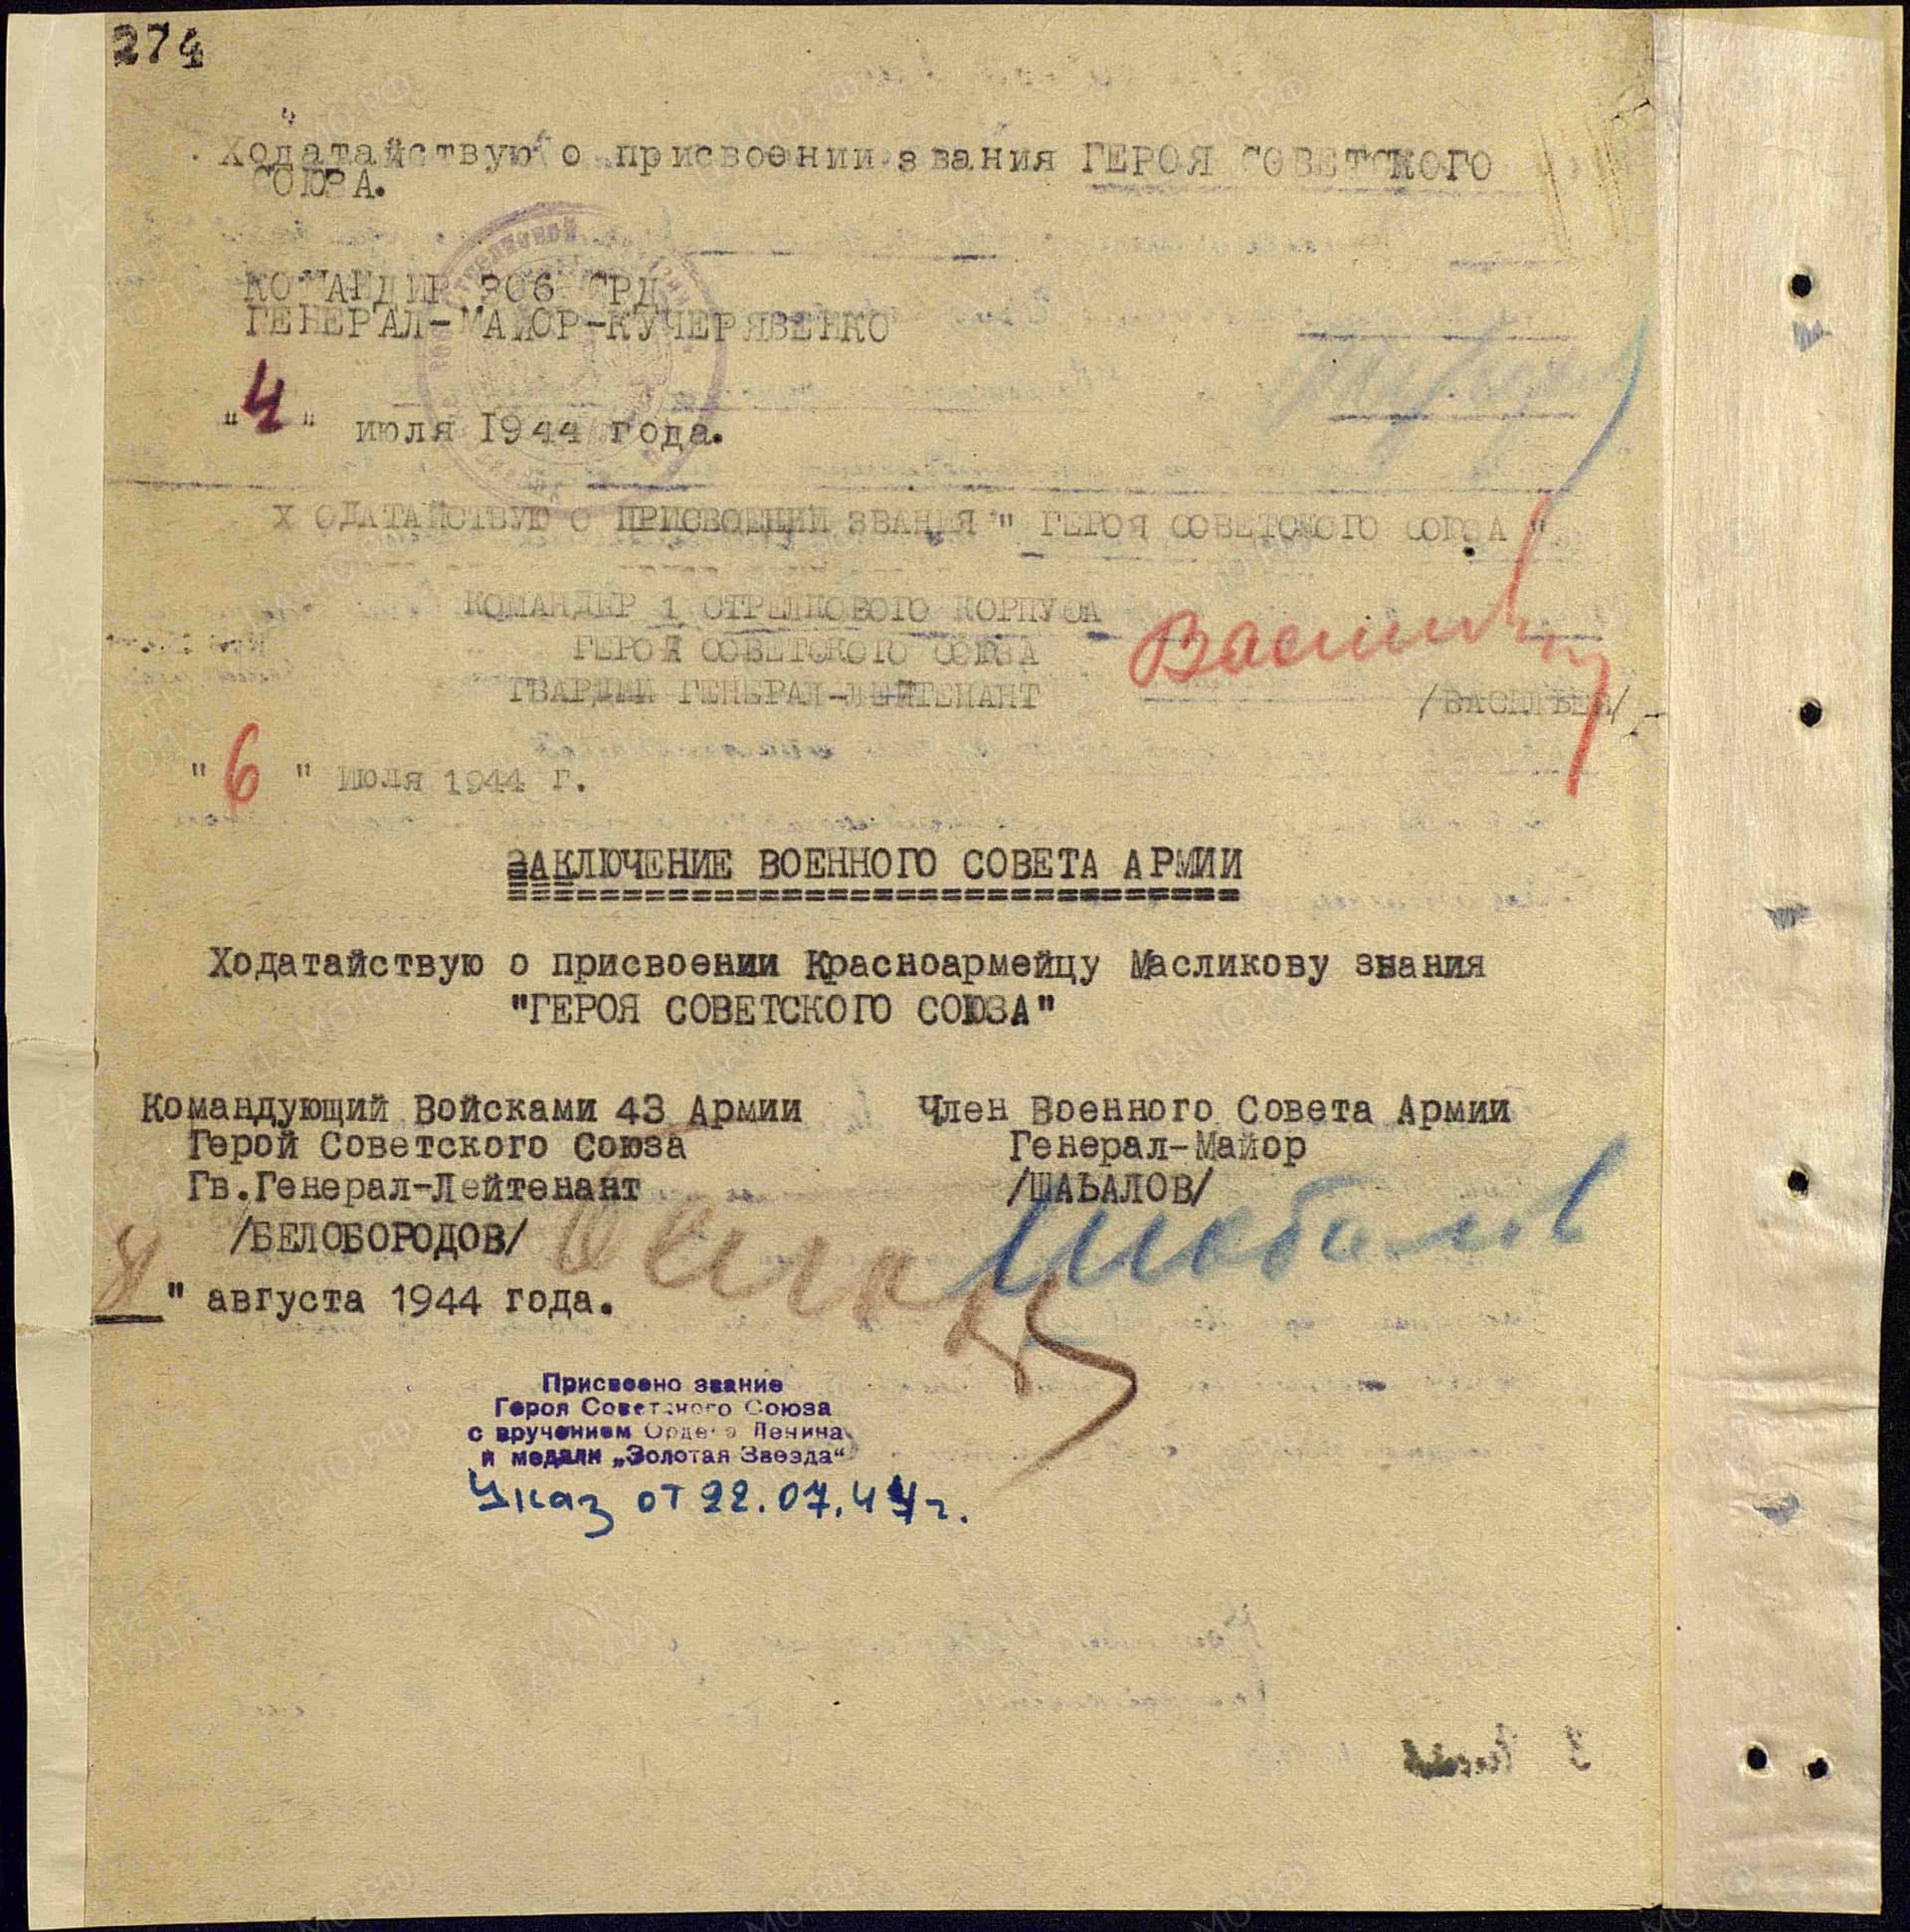 274
Ходатайствую о присвоении звания ГЕРОЯ СОВЕТСКОГО
СОЮЗА.
КОМАНДИР 306 СРД
ГЕНЕРАЛ-МАЙОР-КУЧЕРЯВЕНКО
"4" июля 1944 года.
ХОДАТАЙСТВУЮ О ПРИСВОЕНИИ ЗВАНИЯ " ГЕРОЯ СОВЕТСКОГО СОЮЗА "
КОМАНДИР 1 СТРЕЛКОВОГО КОРПУСА
ГЕРОЙ СОВЕТСКОГО СОЮЗА
ГВАРДИИ ГЕНЕРАЛ-ЛЕЙТЕНАНТ /ВАСИЛЬЕВ/
"6" июля 1944 г.
ЗАКЛЮЧЕНИЕ ВОЕННОГО СОВЕТА АРМИИ
Ходатайствую о присвоении Красноармейцу Масликову звания
"ГЕРОЯ СОВЕТСКОГО СОЮЗА"
Командующий Войсками 43 Армии
Герой Советского Союза
Гв.Генерал-Лейтенант
/БЕЛОБОРОДОВ/
Член Военного Совета Армии
Генерал-Майор
/ШАБАЛОВ/
Шабалов
" августа 1944 года.
Присвоено звание
Героя Советского Союза
с вручением Ордена Ленина
и медали „Золотая Звезда"
Указ от 22.07.44г.